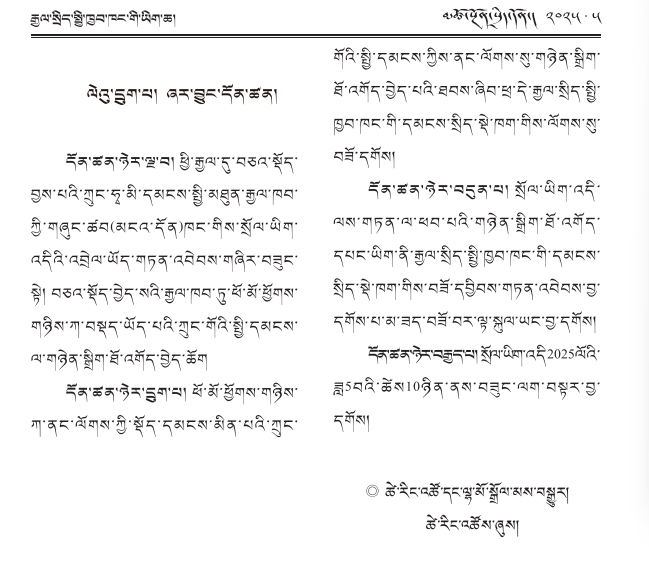 རྒྱལ་སྲིད་སྤྱི་ཁྱབ་ཁང་གི་ཡིག་ཆ།
༢༠༢༥ · ༥
ལེའུ་དྲུག་པ། ཞར་བྱུང་དོན་ཚན།
དོན་ཚན་ཉེར་ལྔ་བ། ཕྱི་རྒྱལ་དུ་བཅའ་སྡོད་
བྱས་པའི་ཀྲུང་ཧྭ་མི་དམངས་སྤྱི་མཐུན་རྒྱལ་ཁབ་
ཀྱི་གཞུང་ཚབ(མངའ་དོན)ཁང་གིས་སྲོལ་ཡིག་
འདིའི་འབྲེལ་ཡོད་གཏན་འབེབས་གཞིར་བཟུང་
སྟེ། བཅའ་སྡོད་བྱེད་སའི་རྒྱལ་ཁབ་ཏུ་ཕོ་མོ་ཕྱོགས་
གཉིས་ཀ་བསྡད་ཡོད་པའི་ཀྲུང་གོའི་སྤྱི་དམངས་
ལ་གཉེན་སྒྲིག་ཐོ་འགོད་བྱེད་ཆོག
དོན་ཚན་ཉེར་དྲུག་པ། ཕོ་མོ་ཕྱོགས་གཉིས་
ཀ་ནང་ལོགས་ཀྱི་སྡོད་དམངས་མིན་པའི་ཀྲུང་
གོའི་སྤྱི་དམངས་ཀྱིས་ནང་ལོགས་སུ་གཉེན་སྒྲིག་
ཐོ་འགོད་བྱེད་པའི་ཐབས་ཞིབ་ཕྲ་དེ་རྒྱལ་སྲིད་སྤྱི་
ཁྱབ་ཁང་གི་དམངས་སྲིད་སྡེ་ཁག་གིས་ལོགས་སུ་
བཟོ་དགོས།
དོན་ཚན་ཉེར་བདུན་པ། སྲོལ་ཡིག་འདི་
ལས་གཏན་ལ་ཕབ་པའི་གཉེན་སྒྲིག་ཐོ་འགོད་
དཔང་ཡིག་ནི་རྒྱལ་སྲིད་སྤྱི་ཁྱབ་ཁང་གི་དམངས་
སྲིད་སྡེ་ཁག་གིས་བཟོ་དབྱིབས་གཏན་འབེབས་བྱ་
དགོས་པ་མ་ཟད་བཟོ་བར་ལྟ་སྐུལ་ཡང་བྱ་དགོས།
དོན་ཚན་ཉེར་བརྒྱད་པ། སྲོལ་ཡིག་འདི2025ལོའི་
ཟླ5བའི་ཚེས10ཉིན་ནས་བཟུང་ལག་བསྟར་བྱ་
དགོས།
◎ ཚེ་རིང་འཚོ་དང་ལྷ་མོ་སྒྲོལ་མས་བསྒྱུར།
ཚེ་རིང་འཚོས་ཞུས།